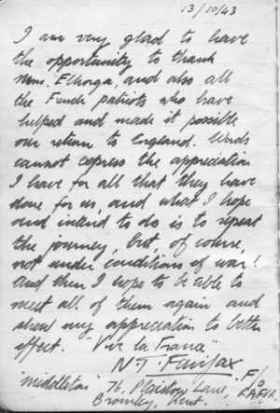 13/10/43
I am very glad to have
the opportunity to thank
Mme. Elhorga, and also all
the French patriots who have
helped and made it possible
our return to England. Words
cannot express the appreciation
I have for all that they have
done for us, and what I hope
and intend to do is to repeat
the journey, but, of course,
not under conditions of war!
and then I hope to be able to
meet all of them again and
show my appreciation to better
effect. "Viv la France"
N.T. Fairfax
F/O
"Middleton" 76, Plaistow Lane,
Bromley, Kent.